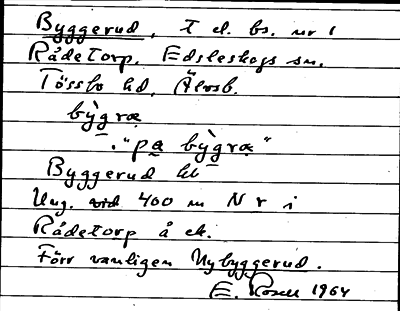 Byggerud, t el. bs. nr 1
Rådetorp, Edsleskogs sn.
Tössbo hd, Älvsb.
bỳgræ
. "pa bỳgræ"
Byggerud lht
Ung. vid 400 m N r i
Rådetorp å ek.
Förr vanligen Nybyggerud.
E. Rosell 1964